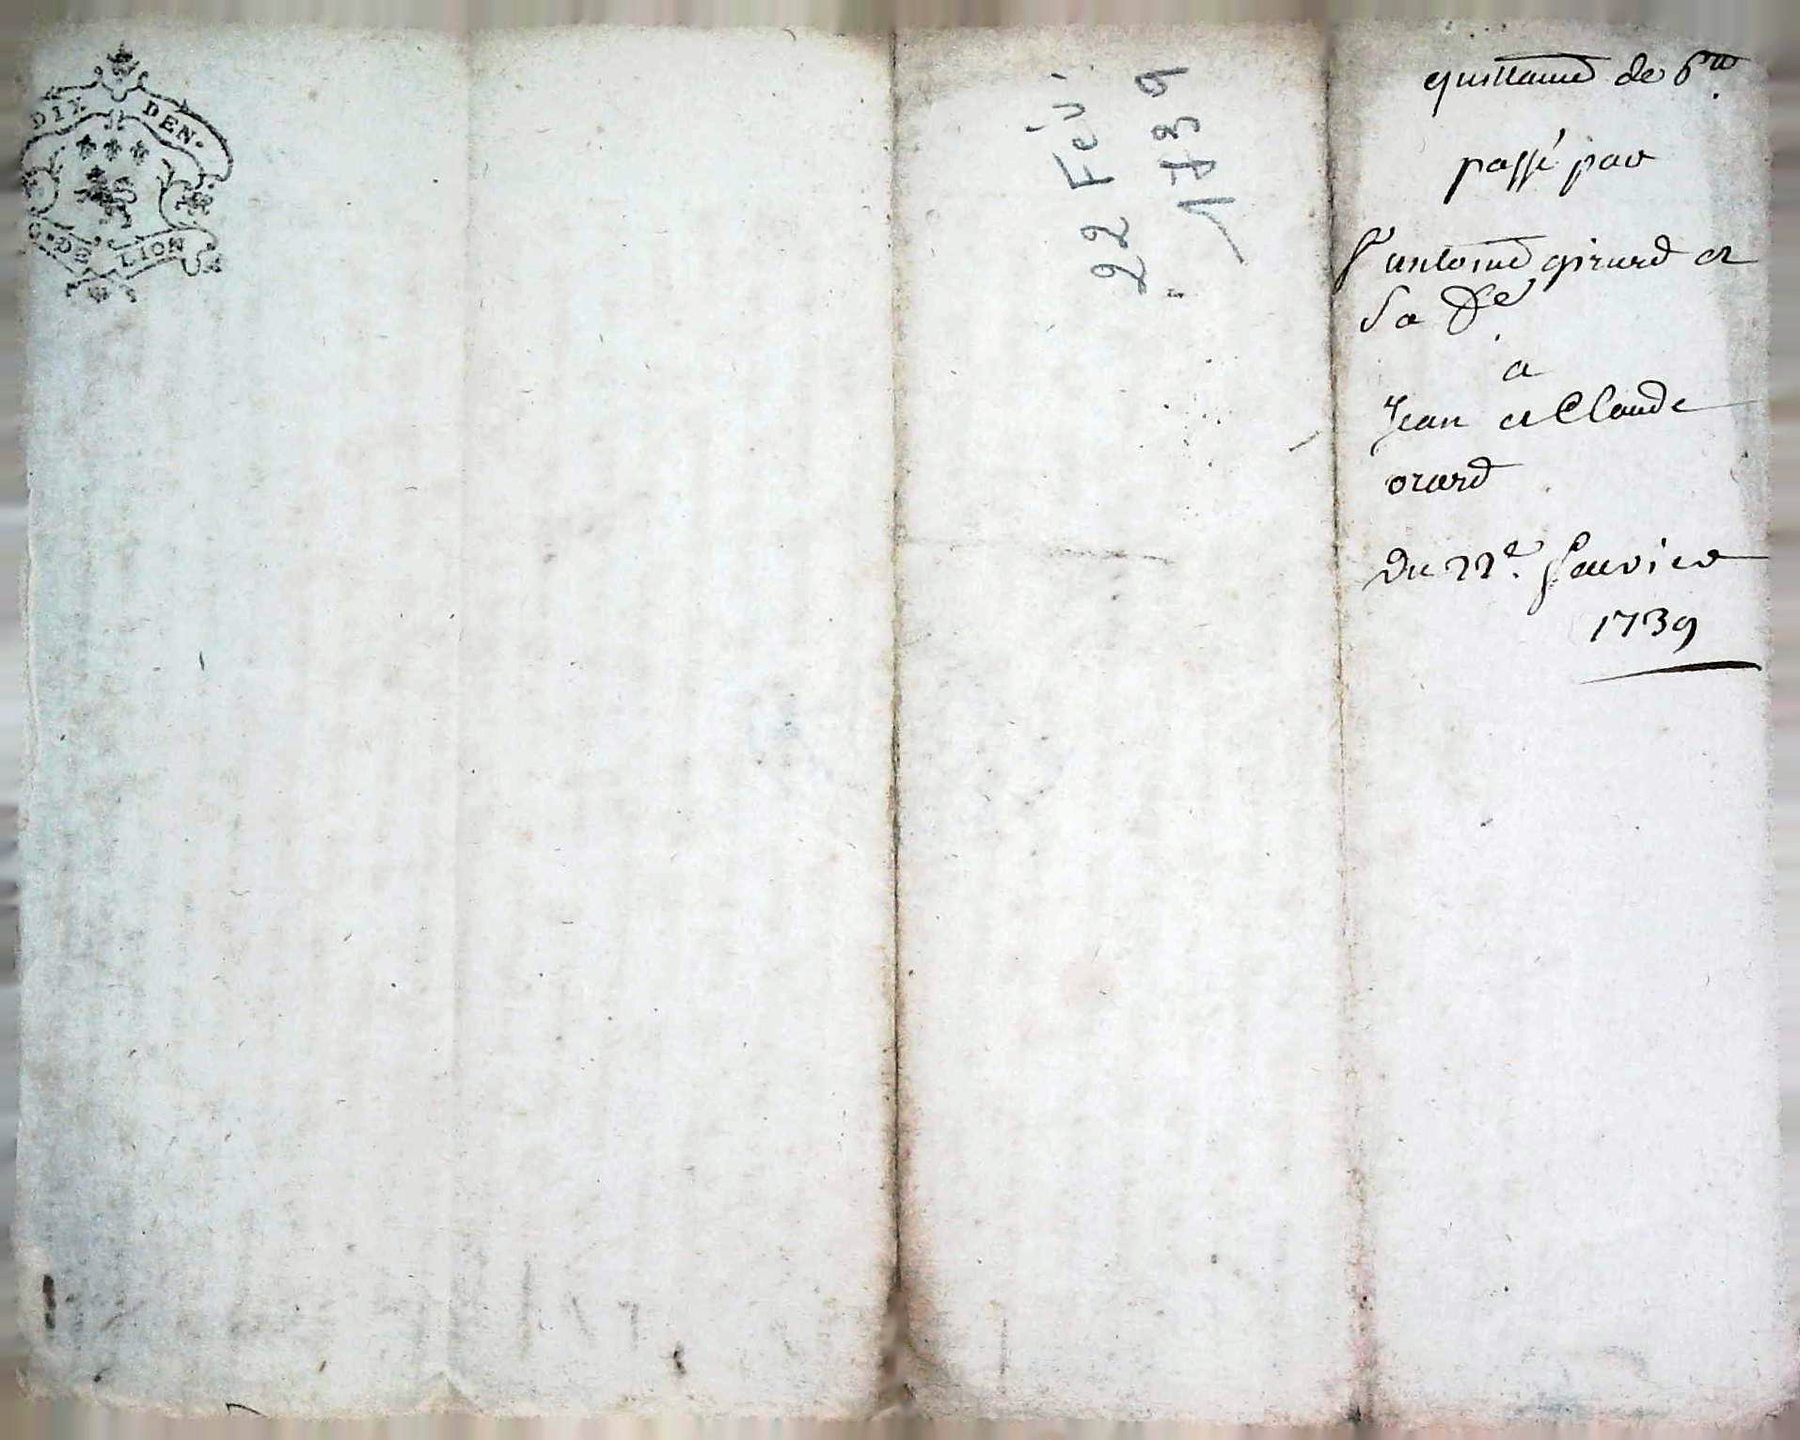 DIX DEN.
DE LION
22 Fév.
1739
quittance de 6##
passé par
St antoine girard et
Sa fe
a
Jean et Claude
orard
Du 22e. Janvier
1739